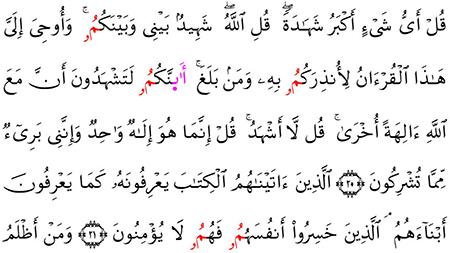 قُلْ أَىُّ شَىْءٍ أَكْبَرُ شَهَٰدَةًۖ قُلِ ٱللَّهُۖ شَهِيدُۢ بَيْنِى وَبَيْنَكُمُۥۚ وَأُوحِىَ إِلَىَّ
هَٰذَا ٱلْقُرْءَانُ لِأُنذِرَكُمُۥ بِهِۦ وَمَنۢ بَلَغَۚ أَا۬ىِٕنَّكُمُۥ لَتَشْهَدُونَ أَنَّ مَعَ
ٱللَّهِ ءَالِهَةً أُخْرَىٰۚ قُل لَّا أَشْهَدُۚ قُلْ إِنَّمَا هُوَ إِلَٰهٌ وَٰحِدٌ وَإِنَّنِى بَرِىٓءٌ
مِّمَّا تُشْرِكُونَ ۝٢٠ ٱلَّذِينَ ءَاتَيْنَٰهُمُ ٱلْكِتَٰبَ يَعْرِفُونَهُۥ كَمَا يَعْرِفُونَ
أَبْنَاءَهُمُۥۘ ٱلَّذِينَ خَسِرُوا۟ أَنفُسَهُمُۥ فَهُمُۥ لَا يُؤْمِنُونَ ۝٢١ وَمَنْ أَظْلَمُ